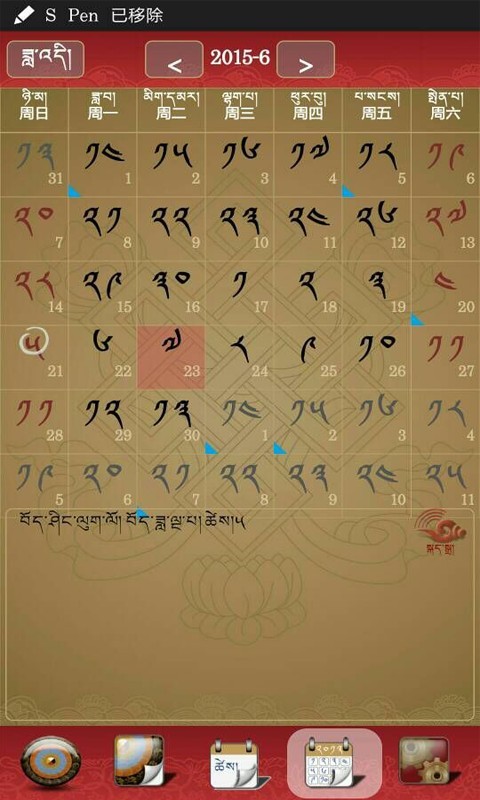 S Pen 已移除
ཟླ་འདི།
< 2015-6 >
ཉི་མ། ཟླ་བ། མིག་དམར། ལྷག་པ། ཕུར་བུ། པ་སངས། སྤེན་པ།
周日 周一 周二 周三 周四 周五 周六
༡༣ ༡༤ ༡༥ ༡༦ ༡༧ ༡༨ ༡༩
31 1 2 3 4 5 6
༢༠ ༢༡ ༢༢ ༢༣ ༢༤ ༢༦ ༢༧
7 8 9 10 11 12 13
༢༨ ༢༩ ༣༠ ༡ ༢ ༣ ༤
14 15 16 17 18 19 20
༥ ༦ ༧ ༨ ༩ ༡༠ ༡༡
21 22 23 24 25 26 27
༡༡ ༡༢ ༡༣ ༡༤ ༡༥ ༡༦ ༡༨
28 29 30 1 2 3 4
༡༩ ༢༠ ༢༡ ༢༢ ༢༣ ༢༤ ༢༥
5 6 7 8 9 10 11
བོད་ཤིང་ལུག་ལོ། བོད་ཟླ་ལྔ་པ། ཚེས།༥
ཚེས།
༢༠༡༣